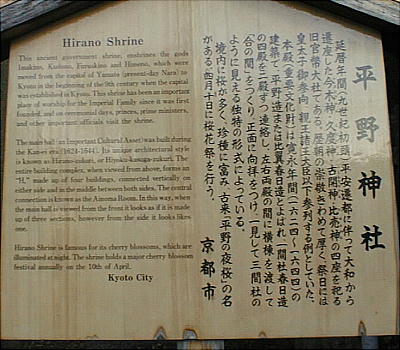 Hirano Shrine
This ancient government shrine, enshrines the gods
Imakino, Kudono, Furuakino and Himeno, which were
moved from the capital of Yamato (present-day Nara) to
Kyoto in the beginning of the 9th century when the capital
was established in Kyoto. This shrine has been an important
place of worship for the Imperial Family since it was first
founded, and on ceremonial days, princes, prime ministers,
and other important officials visit the shrine.
The main hall (an Important Cultural Asset) was built during
the Kan-ei era (1624-1644). Its unique architectural style
is known as Hirano-zukuri, or Hiyoku-kasuga-zukuri. The
entire building complex, when viewed from above, forms an
"H," made up of four buildings, connected vertically on
either side and in the middle between both sides. The central
connection is known as the Ainoma Room. In this way, when
the main hall is viewed from the front it looks as if it is made
up of three sections, however from the side it looks like
one.
Hirano Shrine is famous for its cherry blossoms, which are
illuminated at night. The shrine holds a major cherry blossom
festival annually on the 10th of April.
Kyoto City
平野神社
延暦年間(九世紀初頭)平安遷都に伴って大和から
遷座した今木神・久度神・古開神・比売神の四座を祀る
旧官幣大社である。歴朝の崇敬きわめて厚く、祭日には
皇太子御参向、親王諸王大臣以下参列する例としていた。
本殿(重要文化財)は寛永年間(一六二四〜一六四四)の
建築で、平野造または比翼春日造とよばれ、一間社春日造
の四殿を二殿ずつ連絡し、左右両殿の間に横棟を渡して
「合の間」をつくり、正面に向拝をつけ、一見して三間社の
ように見える独特の形式によっている。
境内に桜が多く、珍種に富み、古来「平野の夜桜」の名
がある。四月十日に桜花祭を行う。
京都市